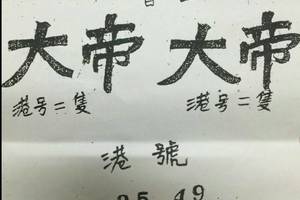 大帝 大帝
港号二隻 港号二隻
港號
25 49